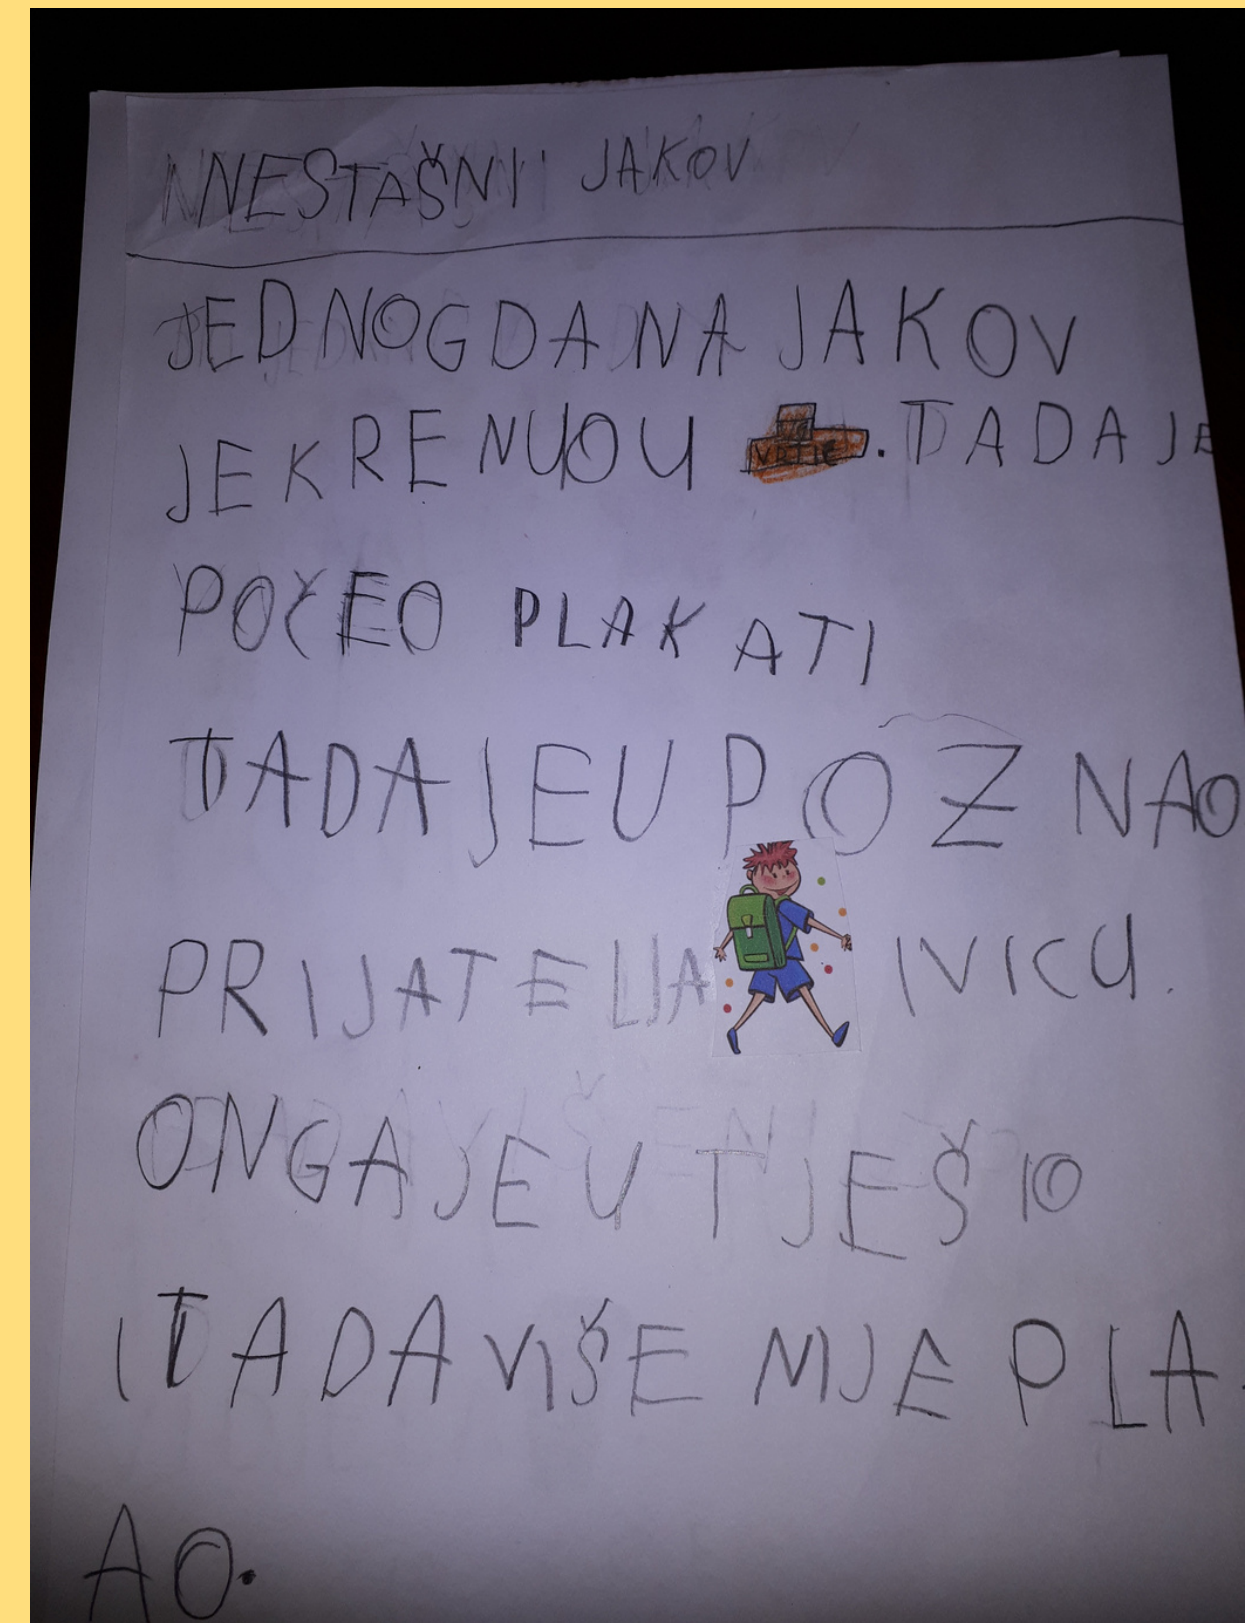 NESTAŠNI JAKOV
JEDNOG DANA JAKOV
JE KRENUOU VRTIĆ. TADA JE
POČEO PLAKATI
TADA JE UPOZNAO
PRIJATELJA IVICU.
ON GA JE UTJEŠIO
I TADA VIŠE NIJE PLA
AO.